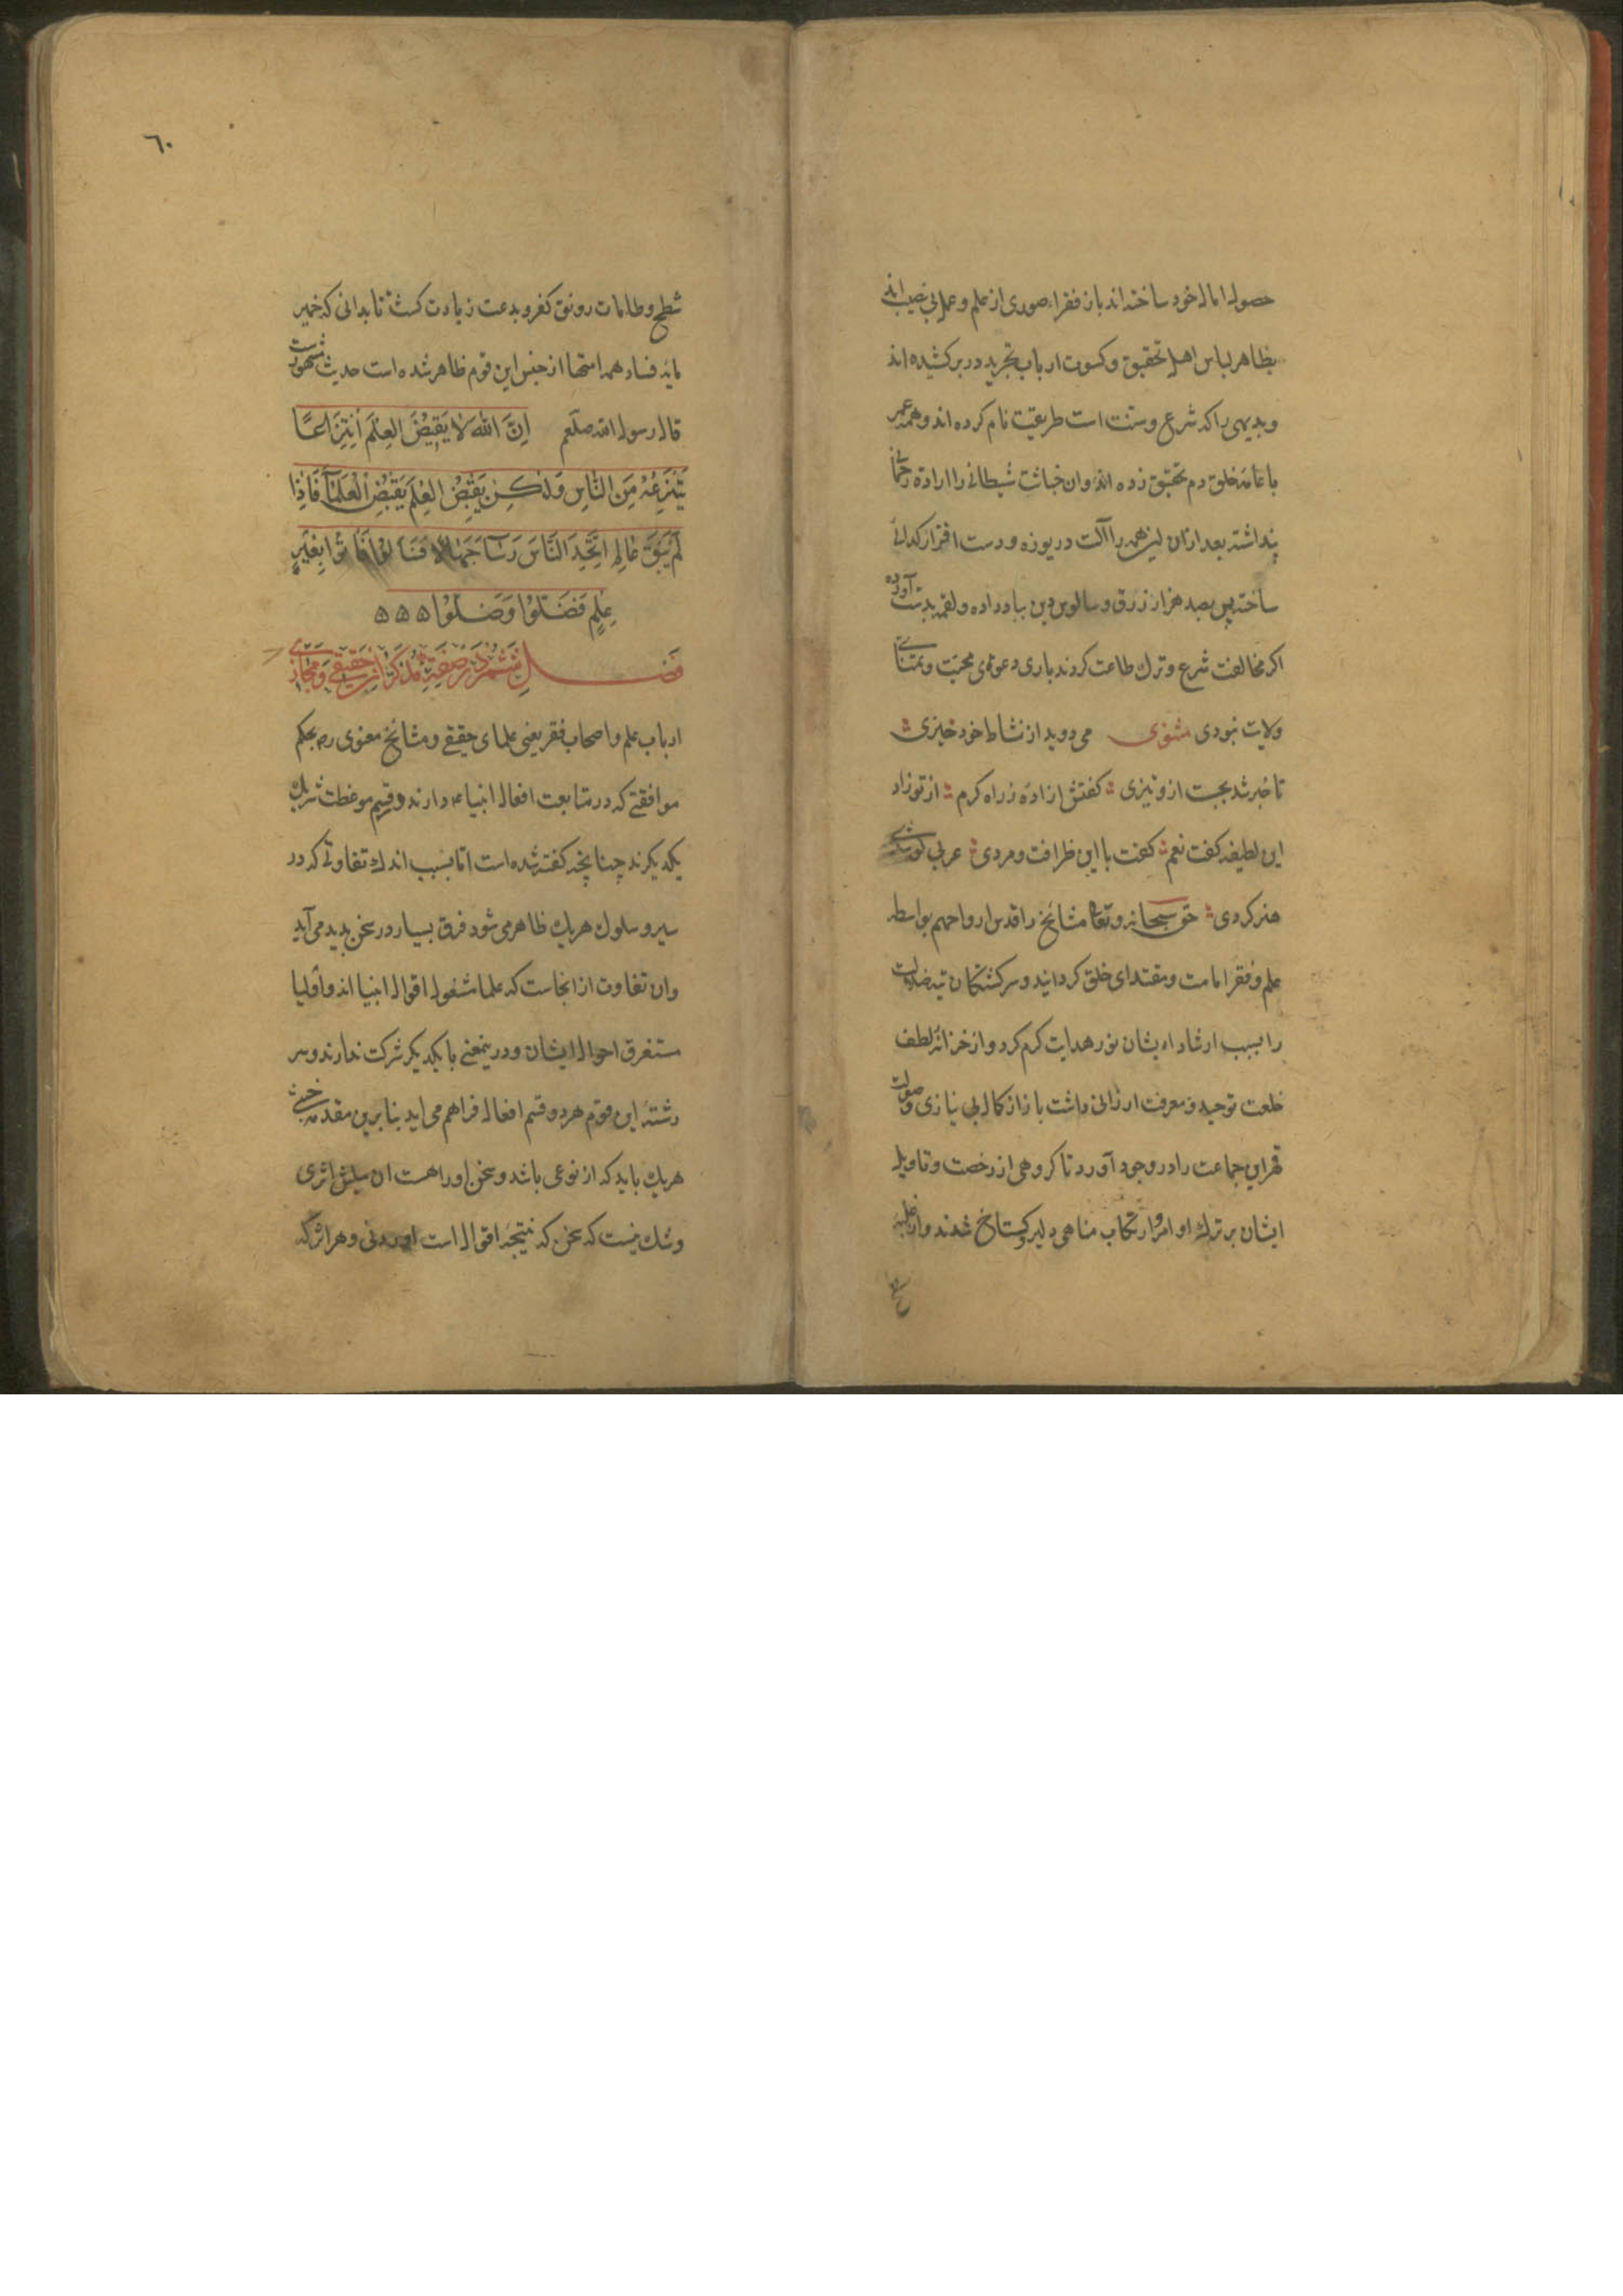 حصول امال خود ساخته اند باز فقراء صوری از علم و عمل بی نصیب اند
بظاهر لباس اهل تحقیق و کسوت ارباب تجرید در بر کشیده اند
و بدیهی را که شرع و سنت است طریقت نام کرده اند و همه عمر
با عامه خلق دم تحقیق زده اند وان خباثت شیطانی را ارادة
پنداشته بعد ازان این همه را آلت دریوزه و دست افزار کدائی
ساخته پس بصد هزار زرق و سالوس دین بباد داده و لقمه بدست آورده
اکر مخالفت شرع و ترك طاعت کردند باری دعوی محبت و تمنای
ولایت نبودی مثنوی می دوید از نشاط خود خیزی
تا خبر شد بجست ازو تیزی کفتش ازاده ز راه کرم از تو زاد
این لطیفه کفت نعم کفت با این ظرافت و مردی عربی
هنر کردی حق سبحانه و تعالی مشائخ را قدس ارواحهم بواسطه
علم و فقر امامت و مقتدای خلق کردانید و سرکشتکان تیه ضلالت
را بسبب ارشاد ایشان نور هدایت کرم کرد و از خزانه لطف
خلعت توحید و معرفت ارزانی داشت باز از کمال بی نیازی و صولت
قهر این جماعت را در وجود آورد تا کروهی از رخصت و تاویل
ایشان بر ترك اوامر و ارتکاب مناهی دلیر و کستاخ شدند و از غلبه
٦٠
شطح و طامات رونق کفر و بدعت زیادت کشت تا بدانی که خمیر
مایه فساد همه از جنس این قوم ظاهر شده است حدیث مشهور است
قال رسول الله صلعم اِنَّ اللهَ لَا يَقْبِضُ العِلْمَ اِنْتِزَاعًا
يَنْتَزِعُهُ مِنَ النَّاسِ وَلٰكِنْ يَقْبِضُ العِلْمَ بِقَبْضِ الْعُلَمَآءِ فَاِذَا
لَمْ يَبْقَ عَالِمٌ اِتَّخَذَ النَّاسُ رُؤَسَآءَ جُهَّالًا فَسَاَلُوْا فَاَفْتَوْا بِغَيْرِ
عِلْمٍ فَضَلُّوْا وَضَلُّوْا ۵۵۵
فصل ششم در صفت مذکران حقیقی و مجازی
ارباب علم و اصحاب فقر یعنی علمای حقیقی و مشائخ معنوی ره بحکم
موافقتی که در متابعت افعال انبیاء دارند در قسم موعظت شریك
یکدیکرند چنانچه کفته شده است اما بسبب اندك تفاوتی که در
سیر و سلوك هریك ظاهر می شود فرق بسیار در سخن پدید می آید
وان تفاوت از انجاست که علما مشغول اقوال انبیا اند و اولیا
مستغرق احوال ایشان و در ینمعنی با یکدیکر شرکت ندارند و سر
رشته این قوم هر دو قسم افعال فراهم می اید بنا برین مقدمه
هریك باید که از نوعی باشد و سخن او را هست ان اثری
و شك نیست که سخن که نتیجه اقوال است اوردنی و هر اثر که